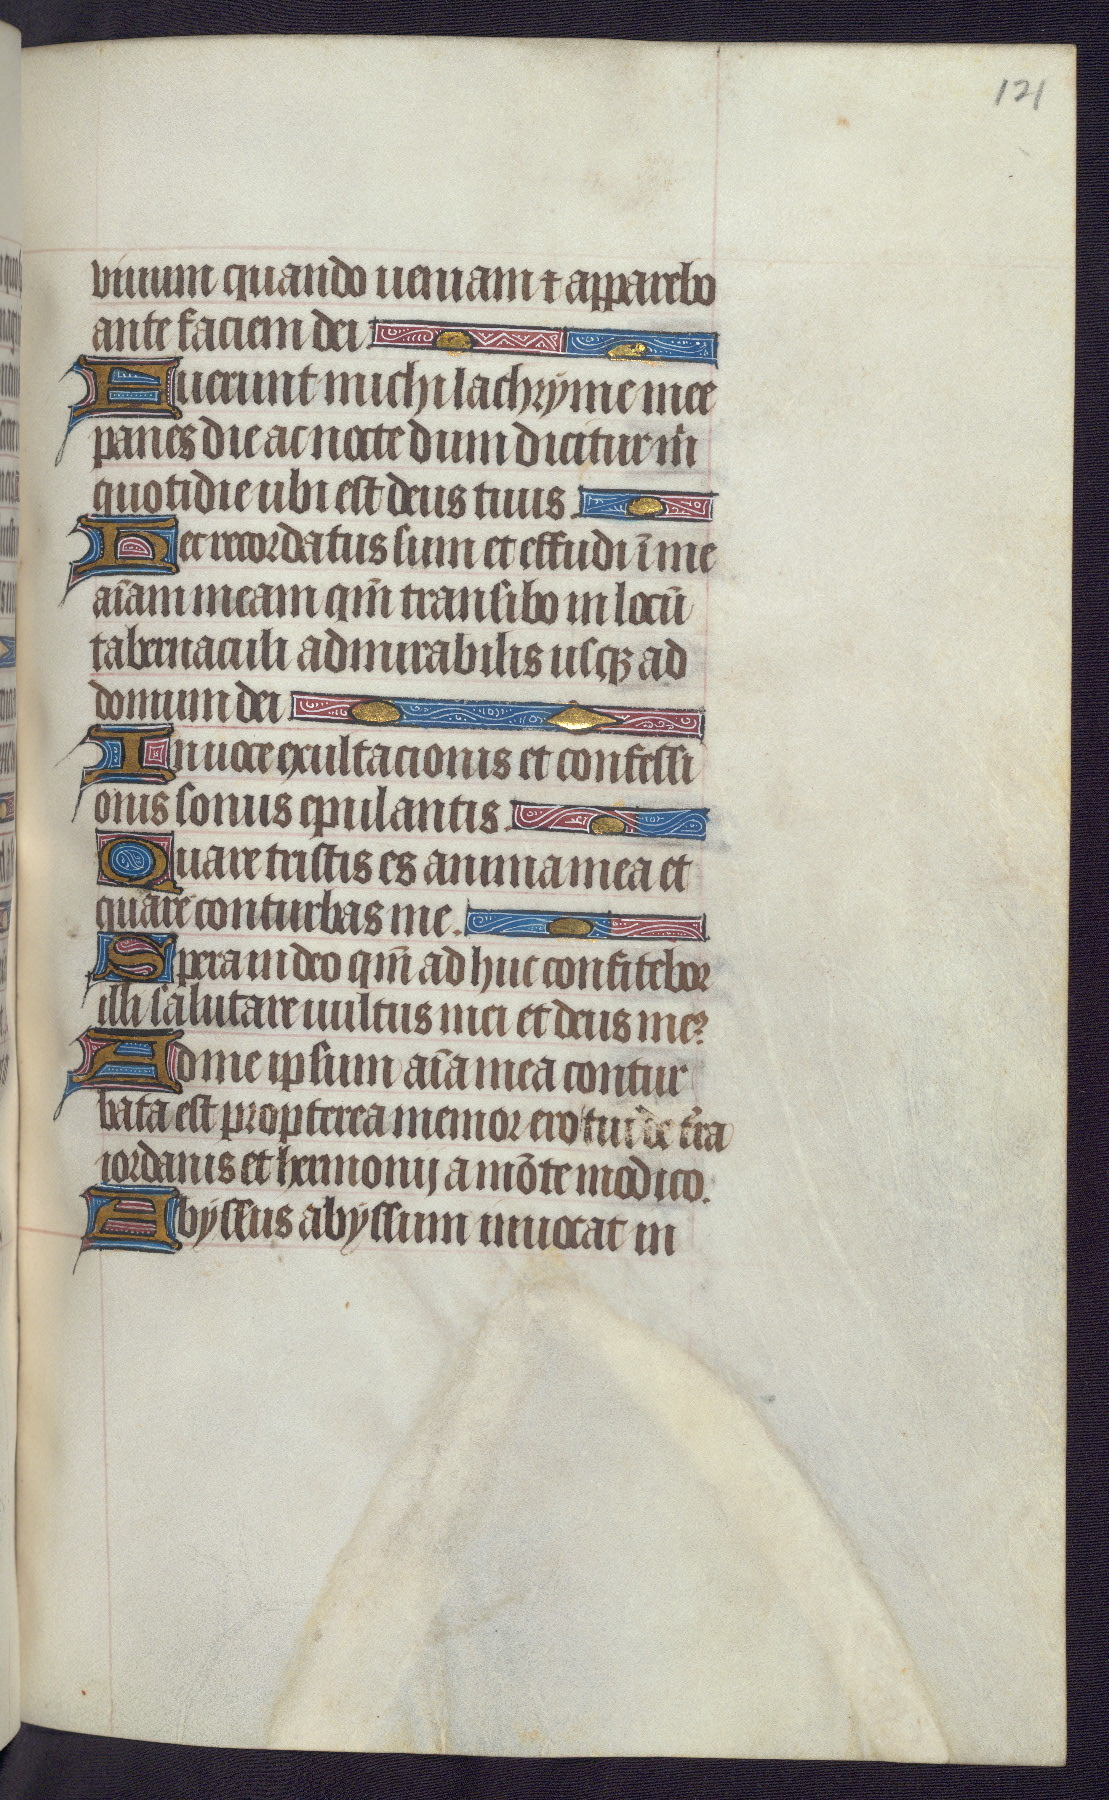 121
viuum quando ueniam ⁊ apparebo
ante faciem dei
Fuerunt michi lachryme mee
panes die ac nocte dum dicitur m̄
quotidie ubi est deus tuus.
Hec recordatus sum et effudi ī me
aīam meam qm̄ transibo in locū
tabernaculi admirabilis usqꝫ ad
domum dei
In uoce exultacionis et confessi
onis sonus epulantis.
Quare tristis es anima mea et
quare conturbas me.
Spera in deo qm̄ ad huc confitebor
illi salutare uultus mei et deus meꝰ
Ad me ipsum aīa mea contur
bata est propterea memor ero tui de tr̄a
iordanis et hermonij a mōte modico.
Abyssus abyssum inuocat in